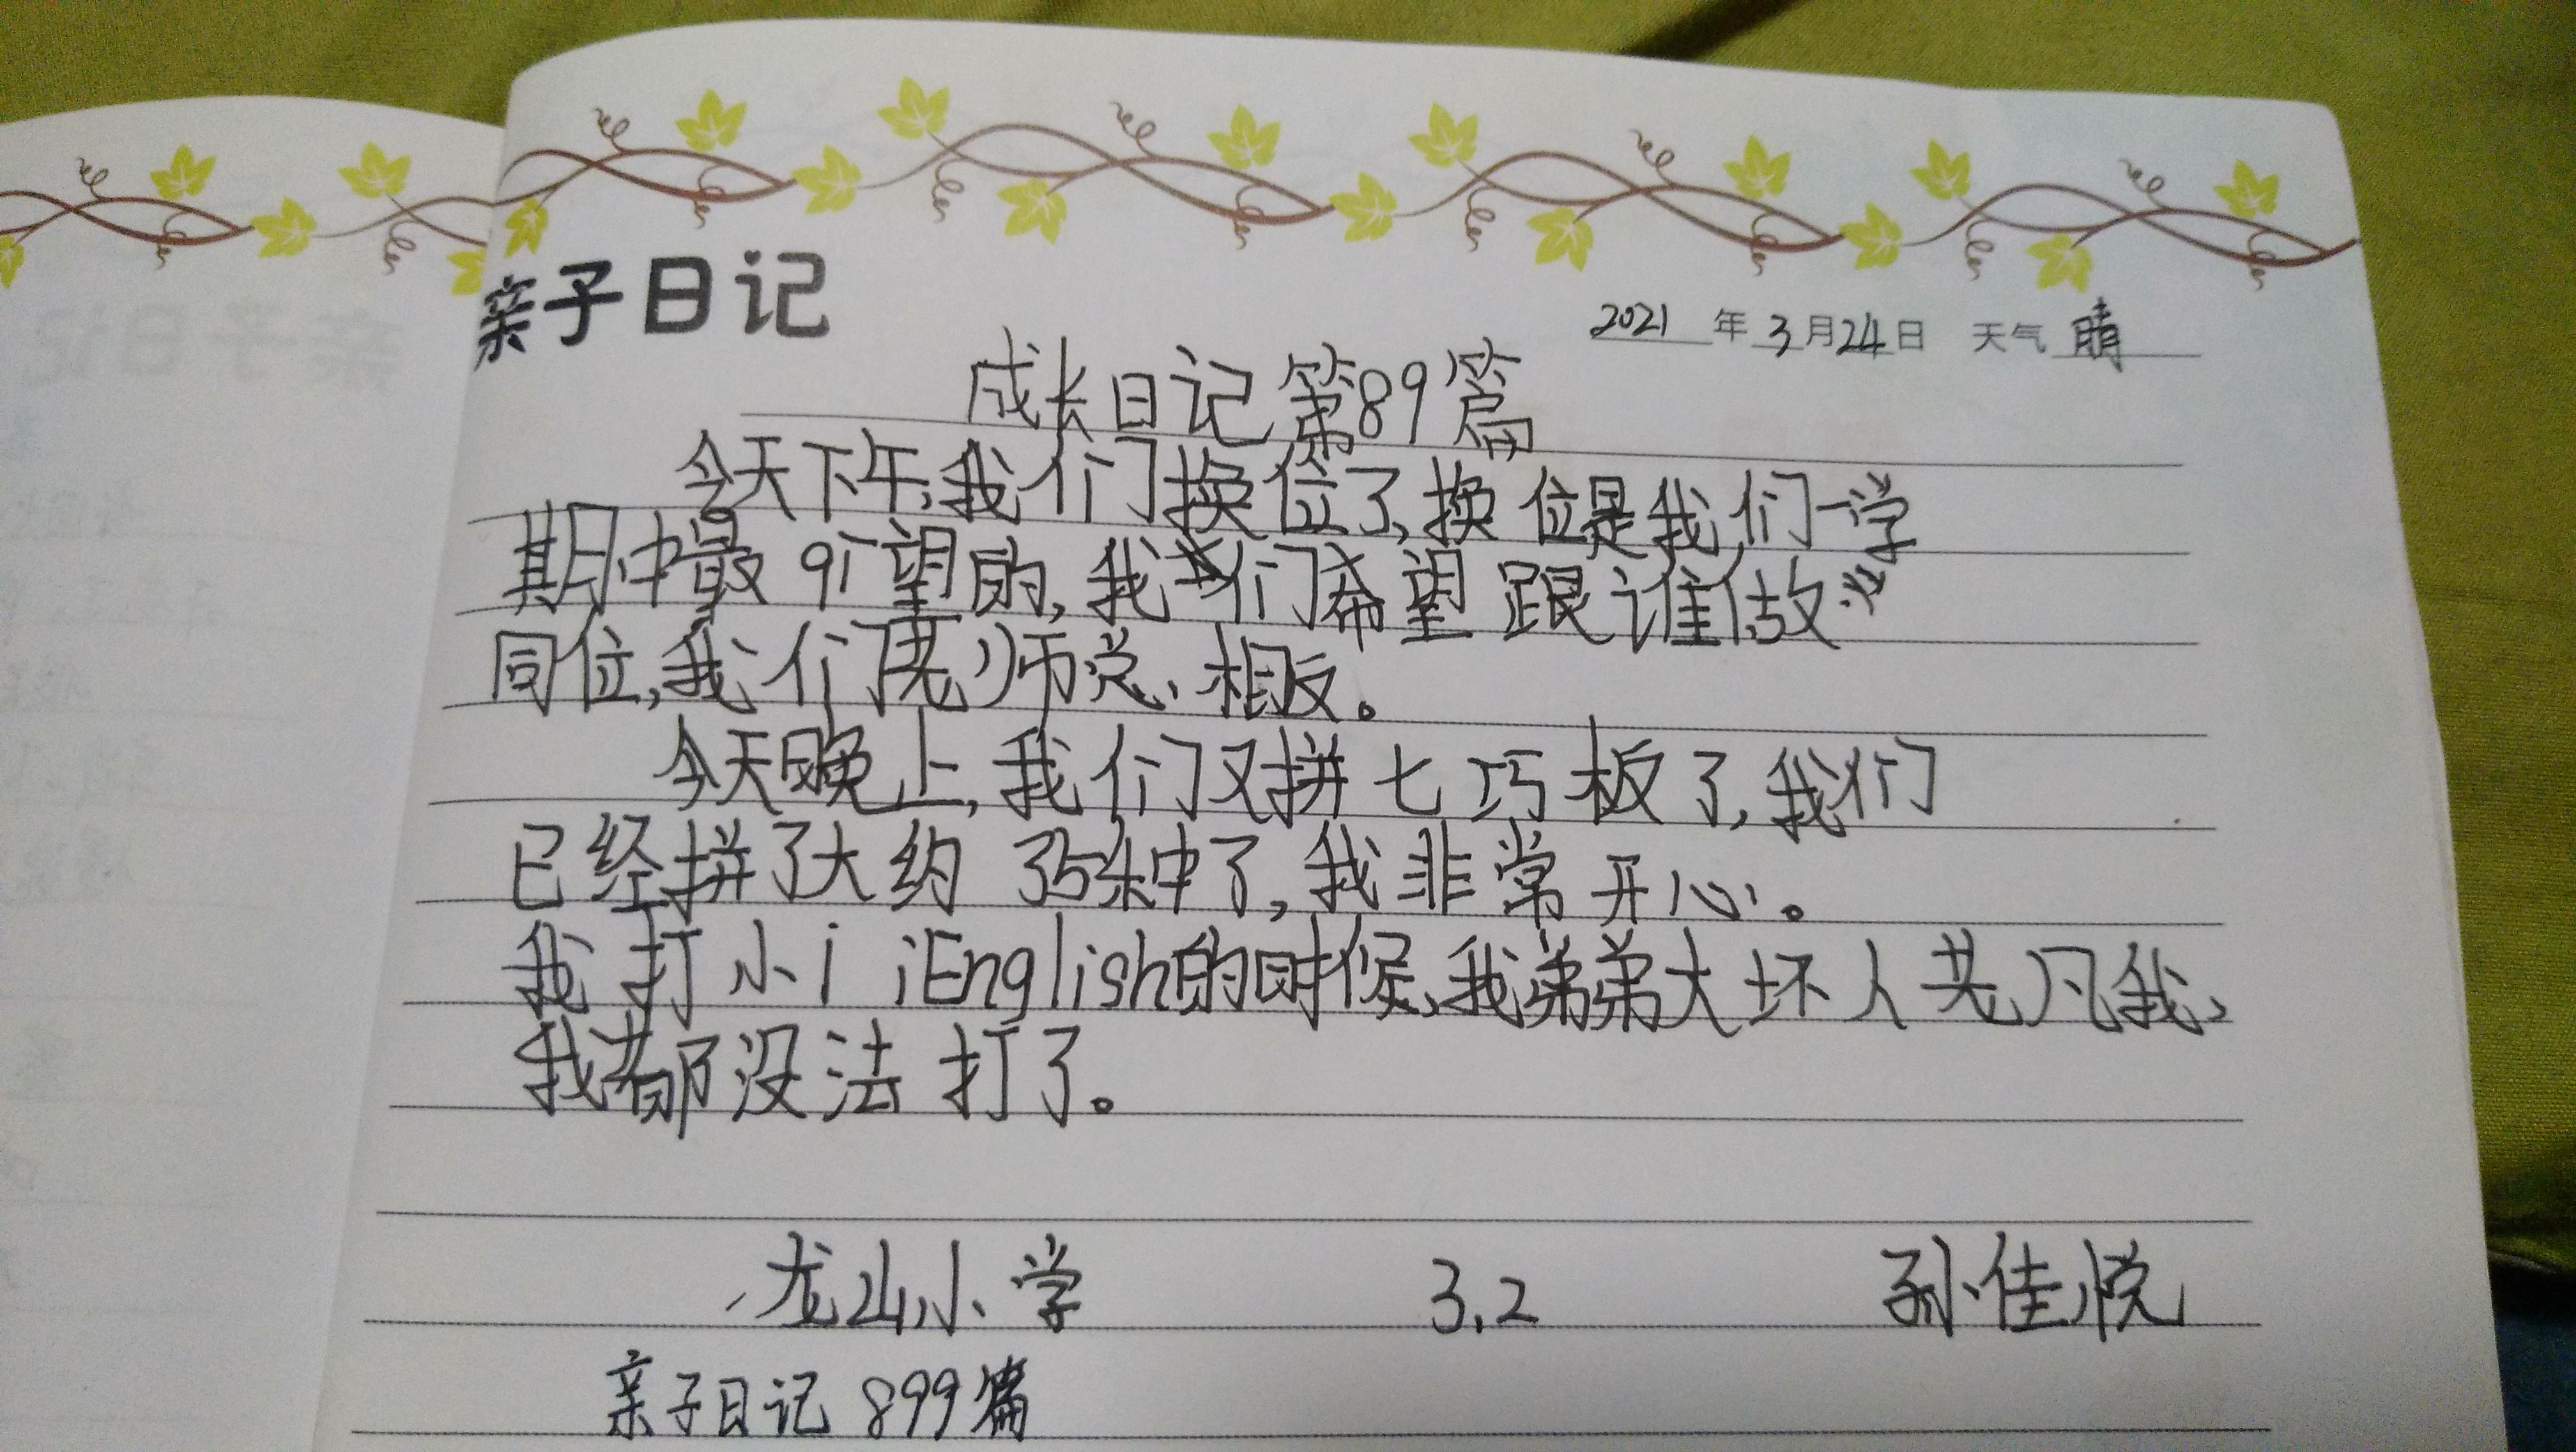 亲子日记
2021年3月24日 天气 晴
成长日记第89篇
今天下午,我们换位了,换位是我们一学
期中最 望的,我们希望跟谁做
同位,我们老师总相反。
今天晚上,我们又拼七巧板了,我们
已经拼了大约35种了,我非常开心。
我打小i iEnglish的时候,我弟弟大坏人 我,
我都没法打了。
龙山小学 3.2 孙佳悦
亲子日记 899篇